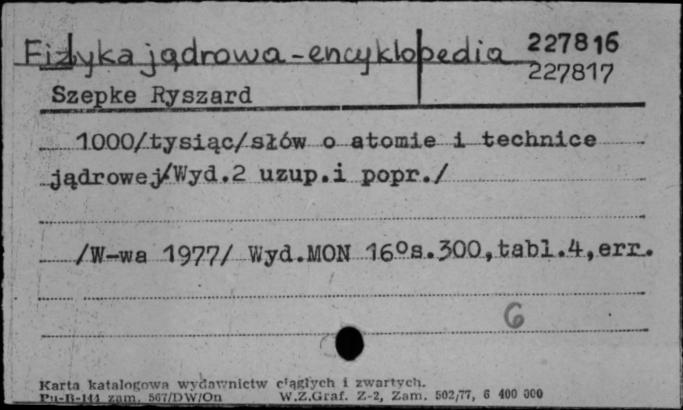 Fizyka jądrowa - encyklopedia 227816
227817
Szepke Ryszard
1000/tysiąc/słów o atomie i technice
jądrowej/Wyd.2 uzup.i popr./
/W-wa 1977/ Wyd.MON 16°s.300,tabl.4,err.
G
Karta katalogowa wydawnictw ciągłych i zwartych.
Pu-B-144 zam. 567/DW/On W.Z.Graf. Z-2, Zam. 502/77, 6 400 000